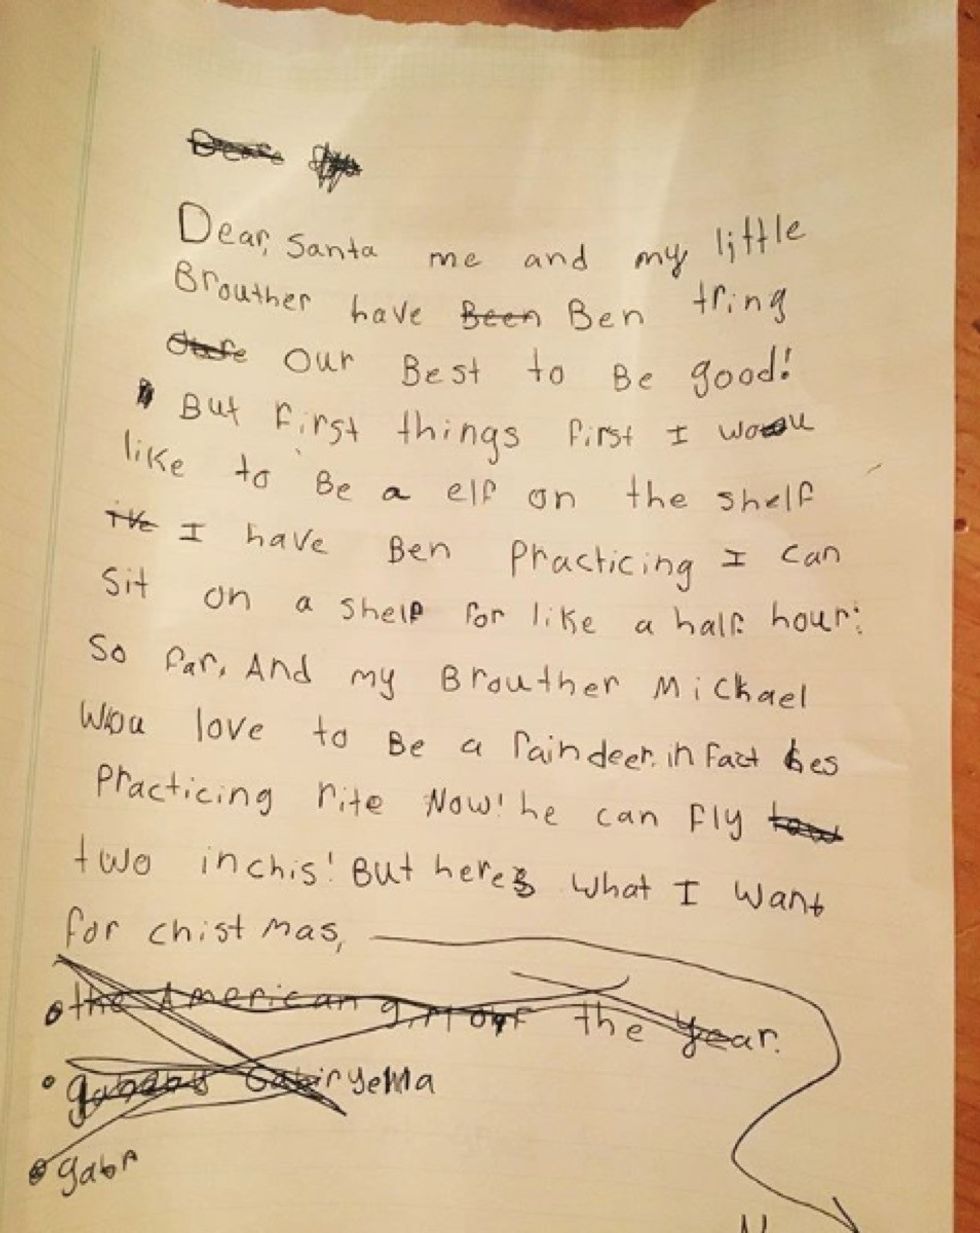 Dear, Santa me and my little
Brouther have Been Ben tring
our Best to Be good!
But first things first I wou
like to Be a elf on the shelf
I've I have Ben Practicing I can
Sit on a shelf for like a half hour:
So far, And my Brouther Mickael
Wou love to Be a raindeer. in fact hes
Practicing rite Now! he can fly
two inchis! But heres what I want
for chistmas,
the American girl of the year.
gabr